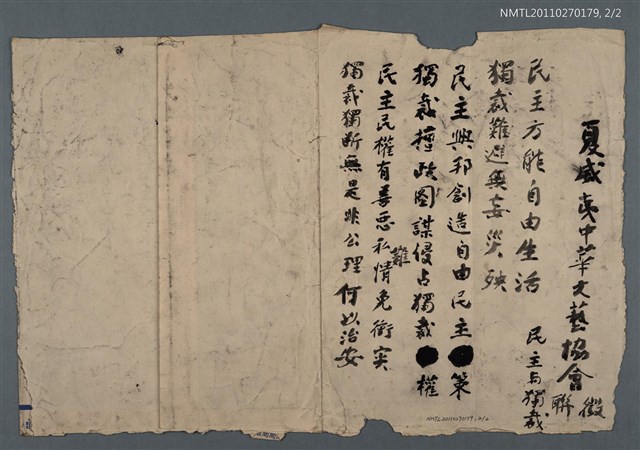 NMTL20110270179, 2/2
夏威夷中華文藝協會徵聯
民主与獨裁
民主方能自由生活
獨裁難避無妄災殃
民主興邦創造自由民主策
獨裁擅政圖謀侵占獨裁權
民主民權有善惡私情難免衝突
獨裁獨斷無是非公理何以治安
NMTL20110270179, 2/2